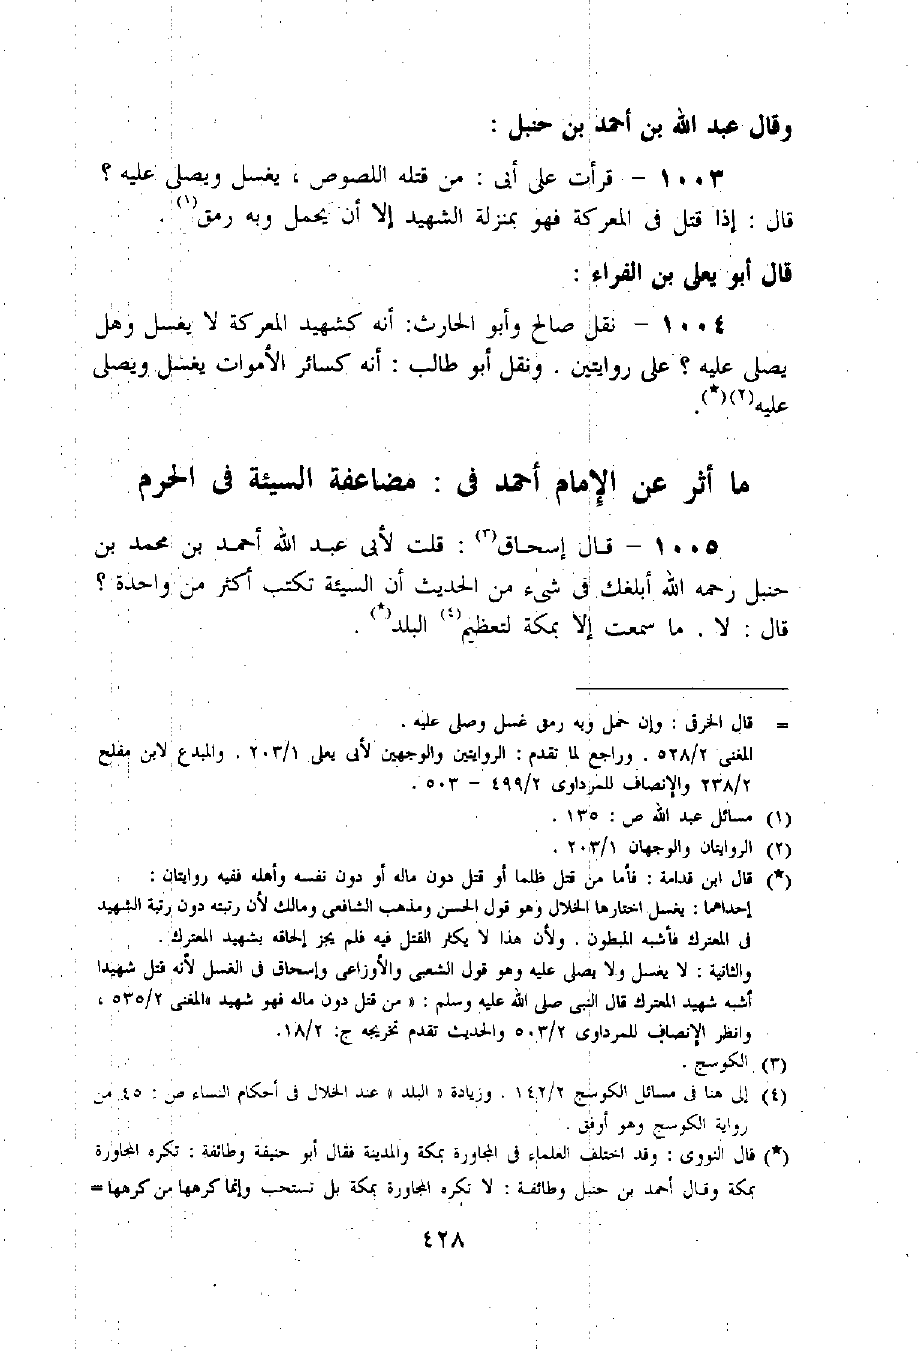 وقال عبد الله بن أحمد بن حنبل :
١٠٠٣ – قرأت على أبى : من قتله اللصوص ، يغسل ويصلى عليه ؟
قال : إذا قتل فى المعركة فهو بمنزلة الشهيد إلا أن يحمل وبه رمق(١) .
قال أبو يعلى بن الفراء :
١٠٠٤ – نقل صالح وأبو الحارث: أنه كشهيد المعركة لا يغسل وهل
يصلى عليه ؟ على روايتين . ونقل أبو طالب : أنه كسائر الأموات يغسل ويصلى
عليه(٢)(*).
ما أثر عن الإمام أحمد فى : مضاعفة السيئة فى الحرم
١٠٠٥ – قال إسحاق(٣) : قلت لأبى عبد الله أحمد بن محمد بن
حنبل رحمه الله أبلغك فى شىء من الحديث أن السيئة تكتب أكثر من واحدة ؟
قال : لا . ما سمعت إلا بمكة لتعظيم(٤) البلد(*) .
= قال الخرقى : وإن حمل وبه رمق غسل وصلى عليه .
المغنى ٥٢٨/٢ . وراجع لما تقدم : الروايتين والوجهين لأبى يعلى ٢٠٣/١ . والمبدع لابن مفلح
٢٣٨/٢ والإنصاف للمرداوى ٤٩٩/٢ – ٥٠٣ .
(١) مسائل عبد الله ص : ١٣٥ .
(٢) الروايتان والوجهان ٢٠٣/١ .
(*) قال ابن قدامة : فأما من قتل ظلما أو قتل دون ماله أو دون نفسه وأهله ففيه روايتان :
إحداهما : يغسل اختارها الخلال وهو قول الحسن ومذهب الشافعى ومالك لأن رتبته دون رتبة الشهيد
فى المعترك فأشبه المبطون . ولأن هذا لا يكثر القتل فيه فلم يجز إلحاقه بشهيد المعترك .
والثانية : لا يغسل ولا يصلى عليه وهو قول الشعبى والأوزاعى وإسحاق فى الغسل لأنه قتل شهيدا
أشبه شهيد المعترك قال النبى صلى الله عليه وسلم : « من قتل دون ماله فهو شهيد »المغنى ٥٣٥/٢ ،
وانظر الإنصاف للمرداوى ٥٠٣/٢ والحديث تقدم تخريجه ج: ١٨/٢.
(٣) الكوسج .
(٤) إلى هنا فى مسائل الكوسج ١٤٢/٢ . وزيادة « البلد » عند الخلال فى أحكام النساء ص : ٤٥ من
رواية الكوسج وهو أوفق .
(*) قال النووى : وقد اختلف العلماء فى المجاورة بمكة والمدينة فقال أبو حنيفة وطائفة : تكره المجاورة
بمكة وقال أحمد بن حنبل وطائفة : لا تكره المجاورة بمكة بل تستحب وإنما كرهها من كرهها =
٤٢٨